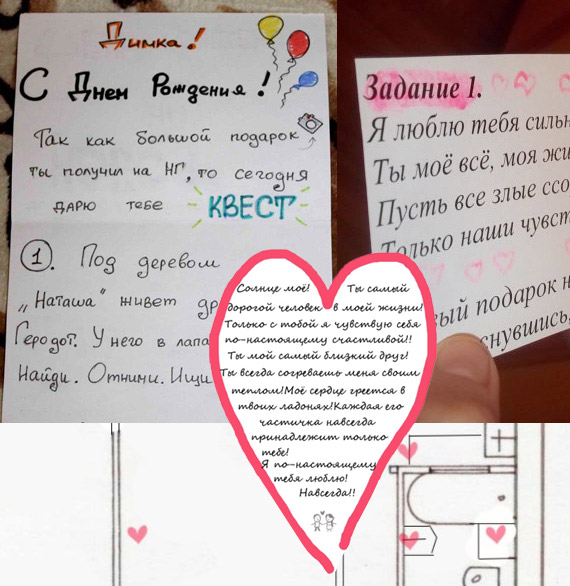 Димка!
С Днем Рождения!
Так как большой подарок
ты получил на НГ, то сегодня
дарю тебе КВЕСТ
1. Под деревом
„Наташа" живет
Геродот. У него в
Найди. Отними. Ищи
Задание 1.
Я люблю тебя
Ты моё всё, моя
Пусть все злые
Только наши
подарок
Солнце моё! Ты самый
дорогой человек в моей жизни!
Только с тобой я чувствую себя
по-настоящему счастливой!!
Ты мой самый близкий друг!
Ты всегда согреваешь меня своим
теплом!Моё сердце греется в
твоих ладонях!Каждая его
частичка навсегда
принадлежит только
тебе!
Я по-настоящему
тебя люблю!
Навсегда!!